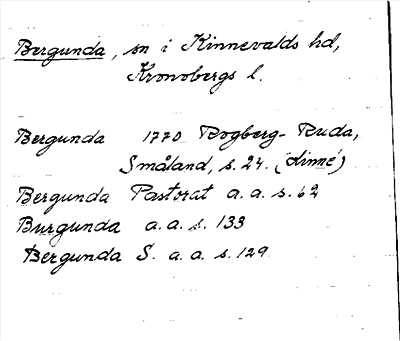 Bergunda, sn i Kinnevalds hd,
Kronobergs l.
Bergunda 1770 Rogberg-Ruda,
Småland, s. 24. (Linné)
Bergunda Pastorat a. a. s. 62
Burgunda a. a. s. 133
Bergunda S. a. a. s. 129